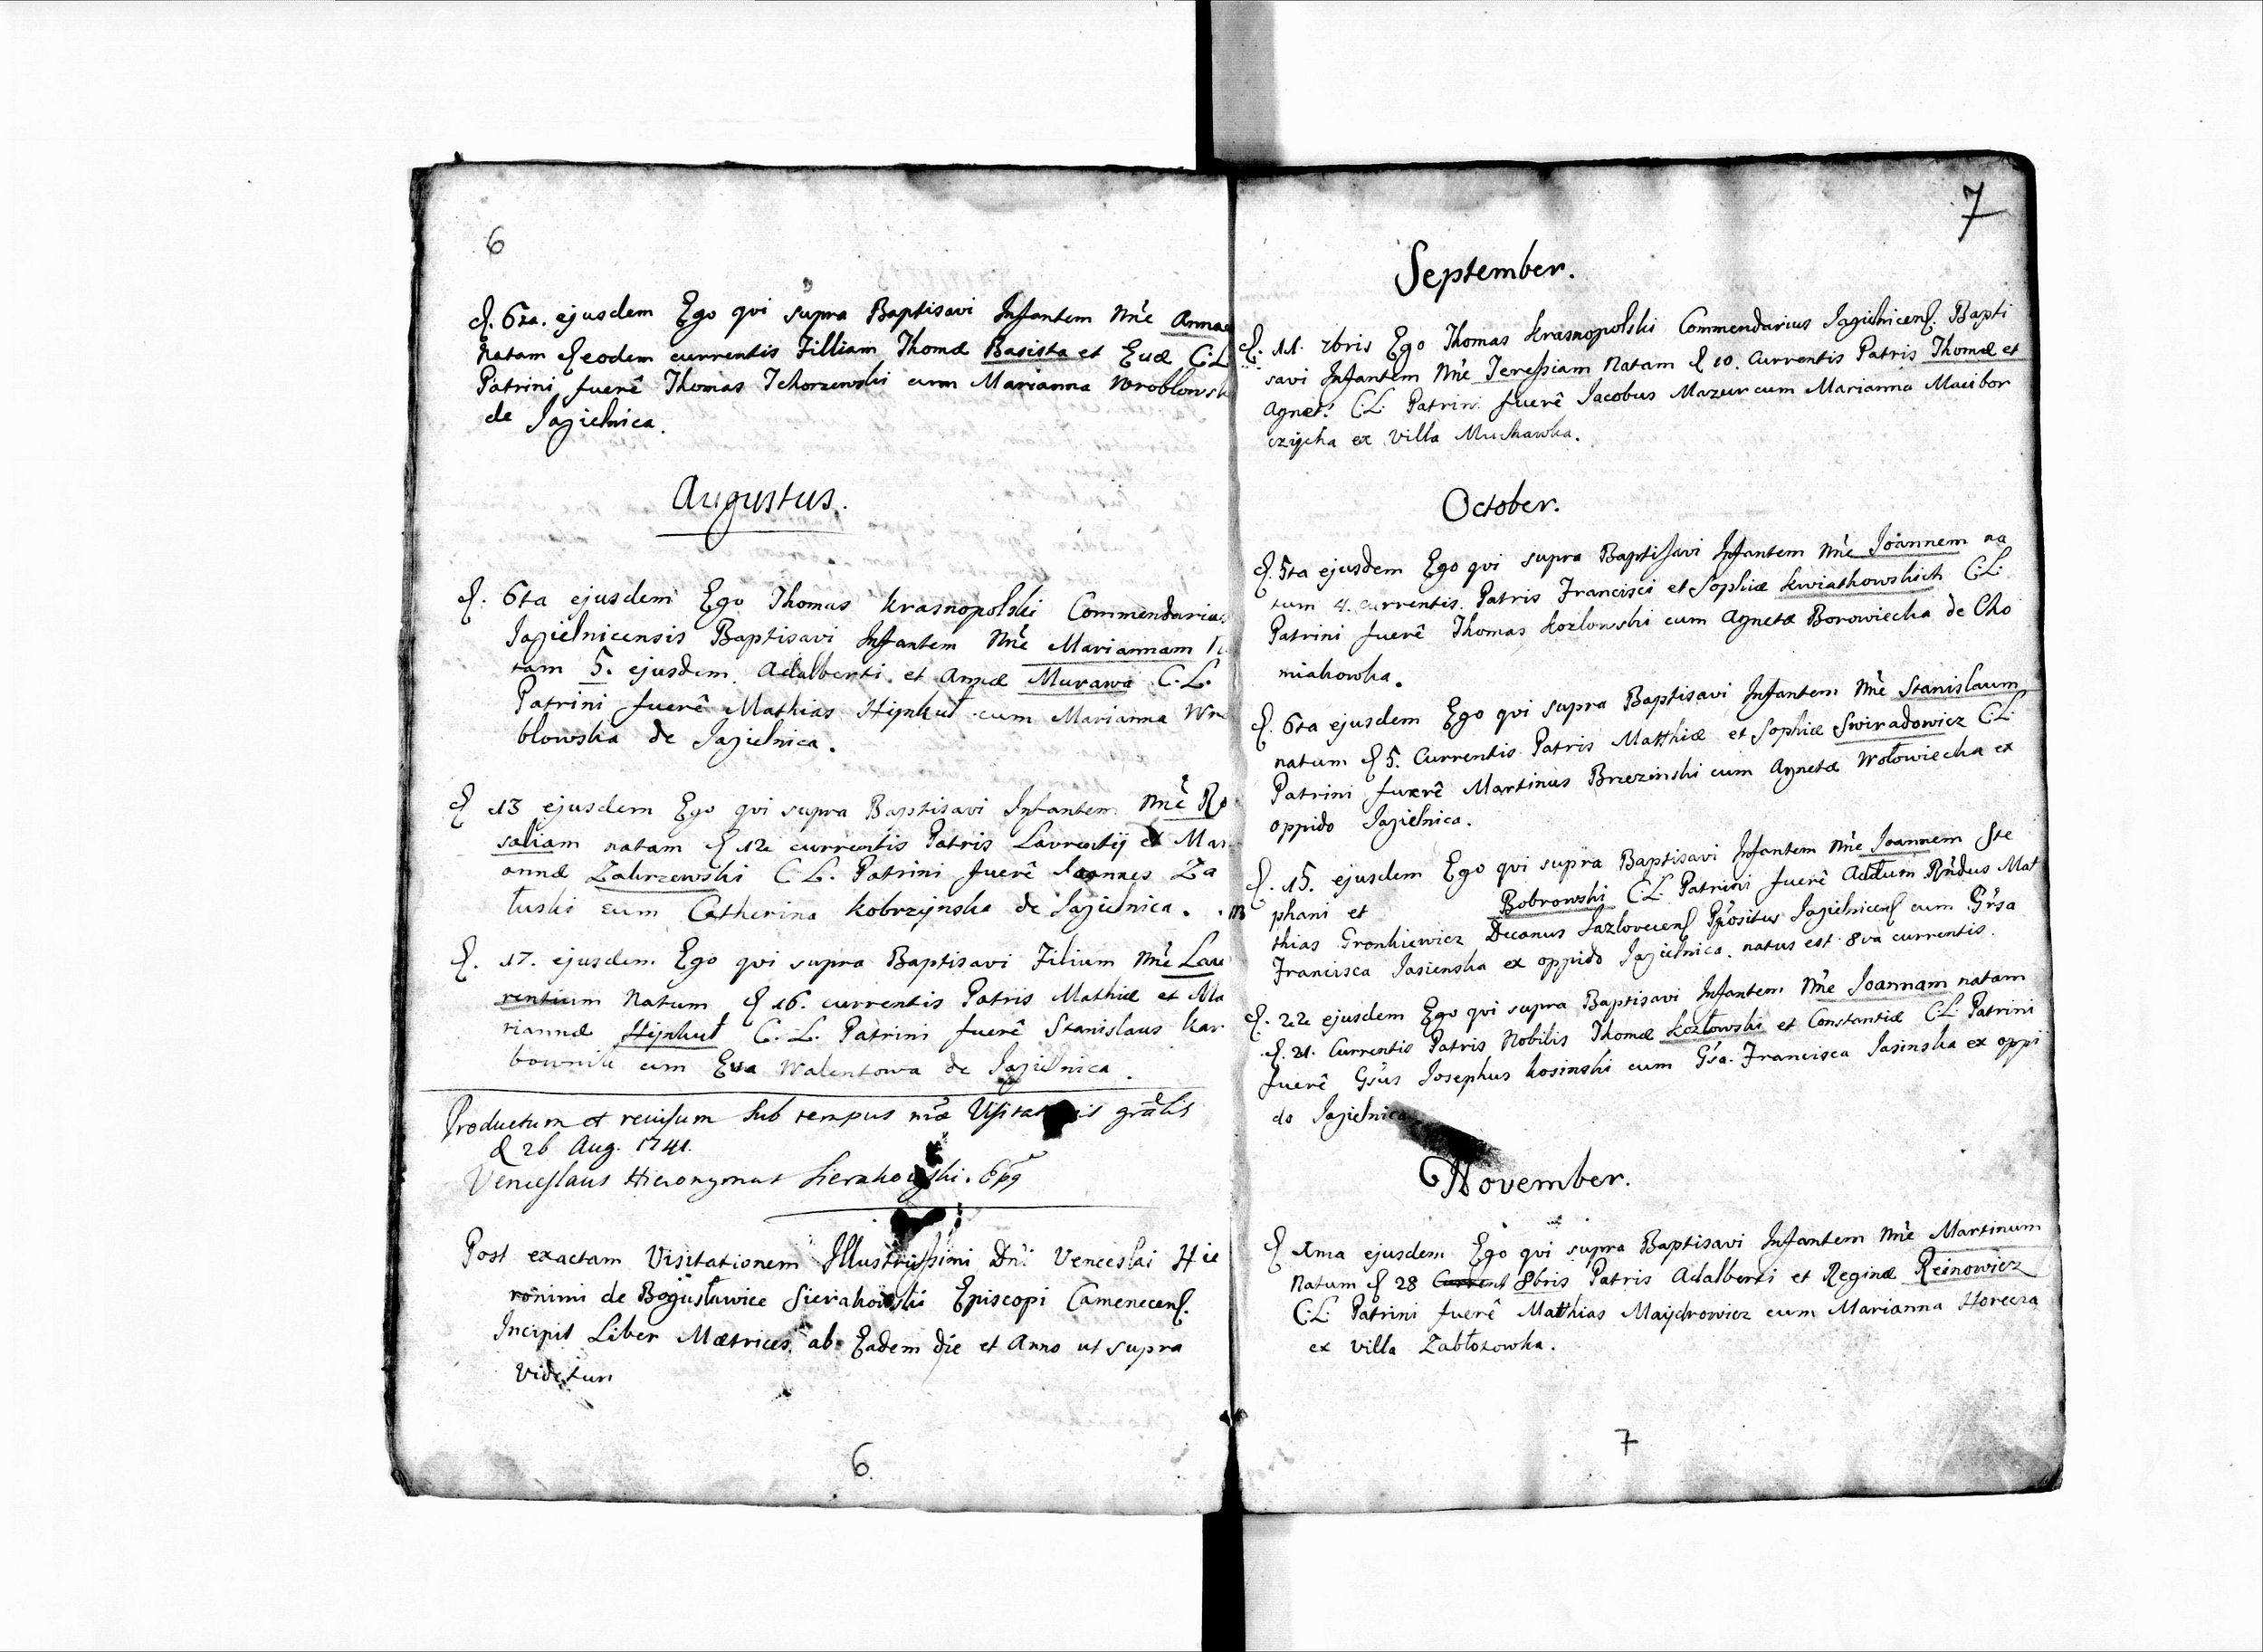 6
d. 6ta. ejusdem Ego qui supra Baptisavi Infantem nne Annam
Natam d eodem currentis Filliam Thomæ Basista et Evæ C.L.
Patrini fuerê Thomas Tchorzewski cum Marianna Wroblowsk
de Jagielnica.
Augustus.
d. 6ta ejusdem Ego Thomas Krasnopolski Commendarius
Jagielnicensis Baptisavi Infantem Nnê Mariannam
tam 5. ejusdem. Adalberti. et Annæ Murawa C.L.
Patrini fuerê Mathias Hijnkuł cum Marianna Wro
blowska de Jagielnica.
d 13 ejusdem Ego qui supra Baptisavi Infantem Nnê Ro
saliam natam d 12 currentis Patris Laurentij et Mari
annæ Zakrzewski C.L. Patrini fuerê Ioannes Za
łuski cum Catherina Kobrzynska de Jagielnica.
d. 17. ejusdem Ego qui supra Baptisavi Filium Nnê Lau
rentium Natum d 16. currentis Patris Mathiæ et Ma
riannæ Hijnkuł C.L. Patrini fuerê Stanislaus Kar
bownik cum Eva Walentowa de Jagielnica.
Productum et revisum sub tempus mæ gnalis
d 26 Aug. 1741.
Venceslaus Hieronymus Sierakowski. Epg
Post exactam Visitationem Illustrissimi Dni Venceslai Hie
ronimi de Bogusławice Sierakowski Episcopi Camenecens.
Incipit Liber Mætrices ab Eadem die et Anno ut supra
Videtur
6
7
September.
d. 11. 7bris Ego Thomas Krasnopolski Commendarius Jagielnicens. Bapti
savi Infantem Nnê Teressiam Natam d 10. Currentis Patris Thomæ et
Agnet: C.L. Patrini fuerê Jacobus Mazur cum Marianna Macibor
czycha ex villa Muchawka.
October.
d. 5ta ejusdem Ego qui supra Baptissavi Infantem Nnê Ioannem na
tum 4. currentis. Patris Francisci et Sophiæ Kwiatkowskich C.L.
Patrini fuerê Thomas Kozlowski cum Agnetæ Borowiecka de Cho
miakowka.
d. 6ta ejusdem Ego qui supra Baptisavi Infantem Nnê Stanislaum
natum d 5. Currentis Patris Matthiæ et Sophiæ Swiradowicz C.L.
Patrini fuerê Martinus Brzezinski cum Agnetæ Wołowiecka ex
oppido Jagielnica.
d. 15. ejusdem Ego qui supra Baptisavi Infantem Nnê Ioannem Ste
phani et Bobrowski C.L. Patrini fuerê Rndus Mat
thias Gronkiewicz Decanus Jazlovecens Ppositus Jagielnicens cum Grsa
Francisca Jasienska ex oppido Jagielnica. natus est 8va currentis.
d. 22 ejusdem Ego qui supra Baptisavi Infantem Nnê Ioannam natam
d. 21. Currentis Patris Nobilis Thomæ Kozłowski et Constantiæ C.L. Patrini
fuerê Gsus Josephus Kosinski cum Gsa. Francisca Jasinska ex oppi
do Jagielnica
November.
d Xma ejusdem Ego qui supra Baptisavi Infantem Nnê Martinum
Natum d 28 Current 8bris Patris Adalberti et Reginæ Reinowicz
C.L. Patrini fuerê Matthias Majdrowicz cum Marianna Horecza
ex villa Zabłotowka.
7